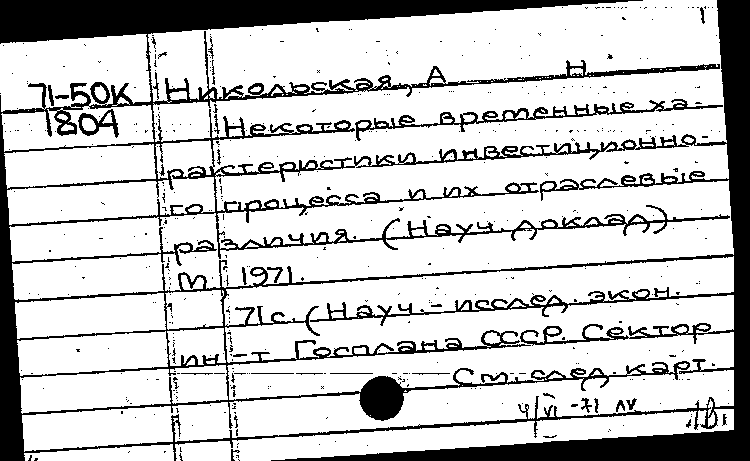 1
71-50К Никольская, А Н
1804 Некоторые временные ха-
рактеристики инвестиционно-
го процесса и их отраслевые
различия. (Науч. доклад).
М 1971.
71с. (Науч.-исслед. экон.
ин-т Госплана СССР. Сектор
См. след. карт.
4/VI -71